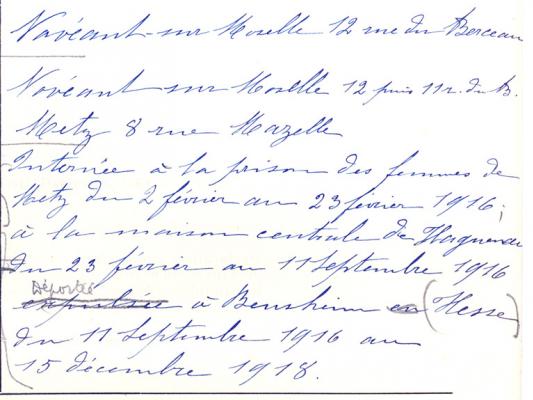 Novéant-sur Moselle 12 rue du Berceau
Novéant sur Moselle 12 puis 11 r. du B.
Metz 8 rue Mazelle
Internée à la prison des femmes de
Metz du 2 février au 23 février 1916;
à la maison centrale de Haguenau
du 23 février au 11 Septembre 1916
Déporté
expulsée à Bensheim en (Hesse)
du 11 Septembre 1916 au
15 décembre 1918.